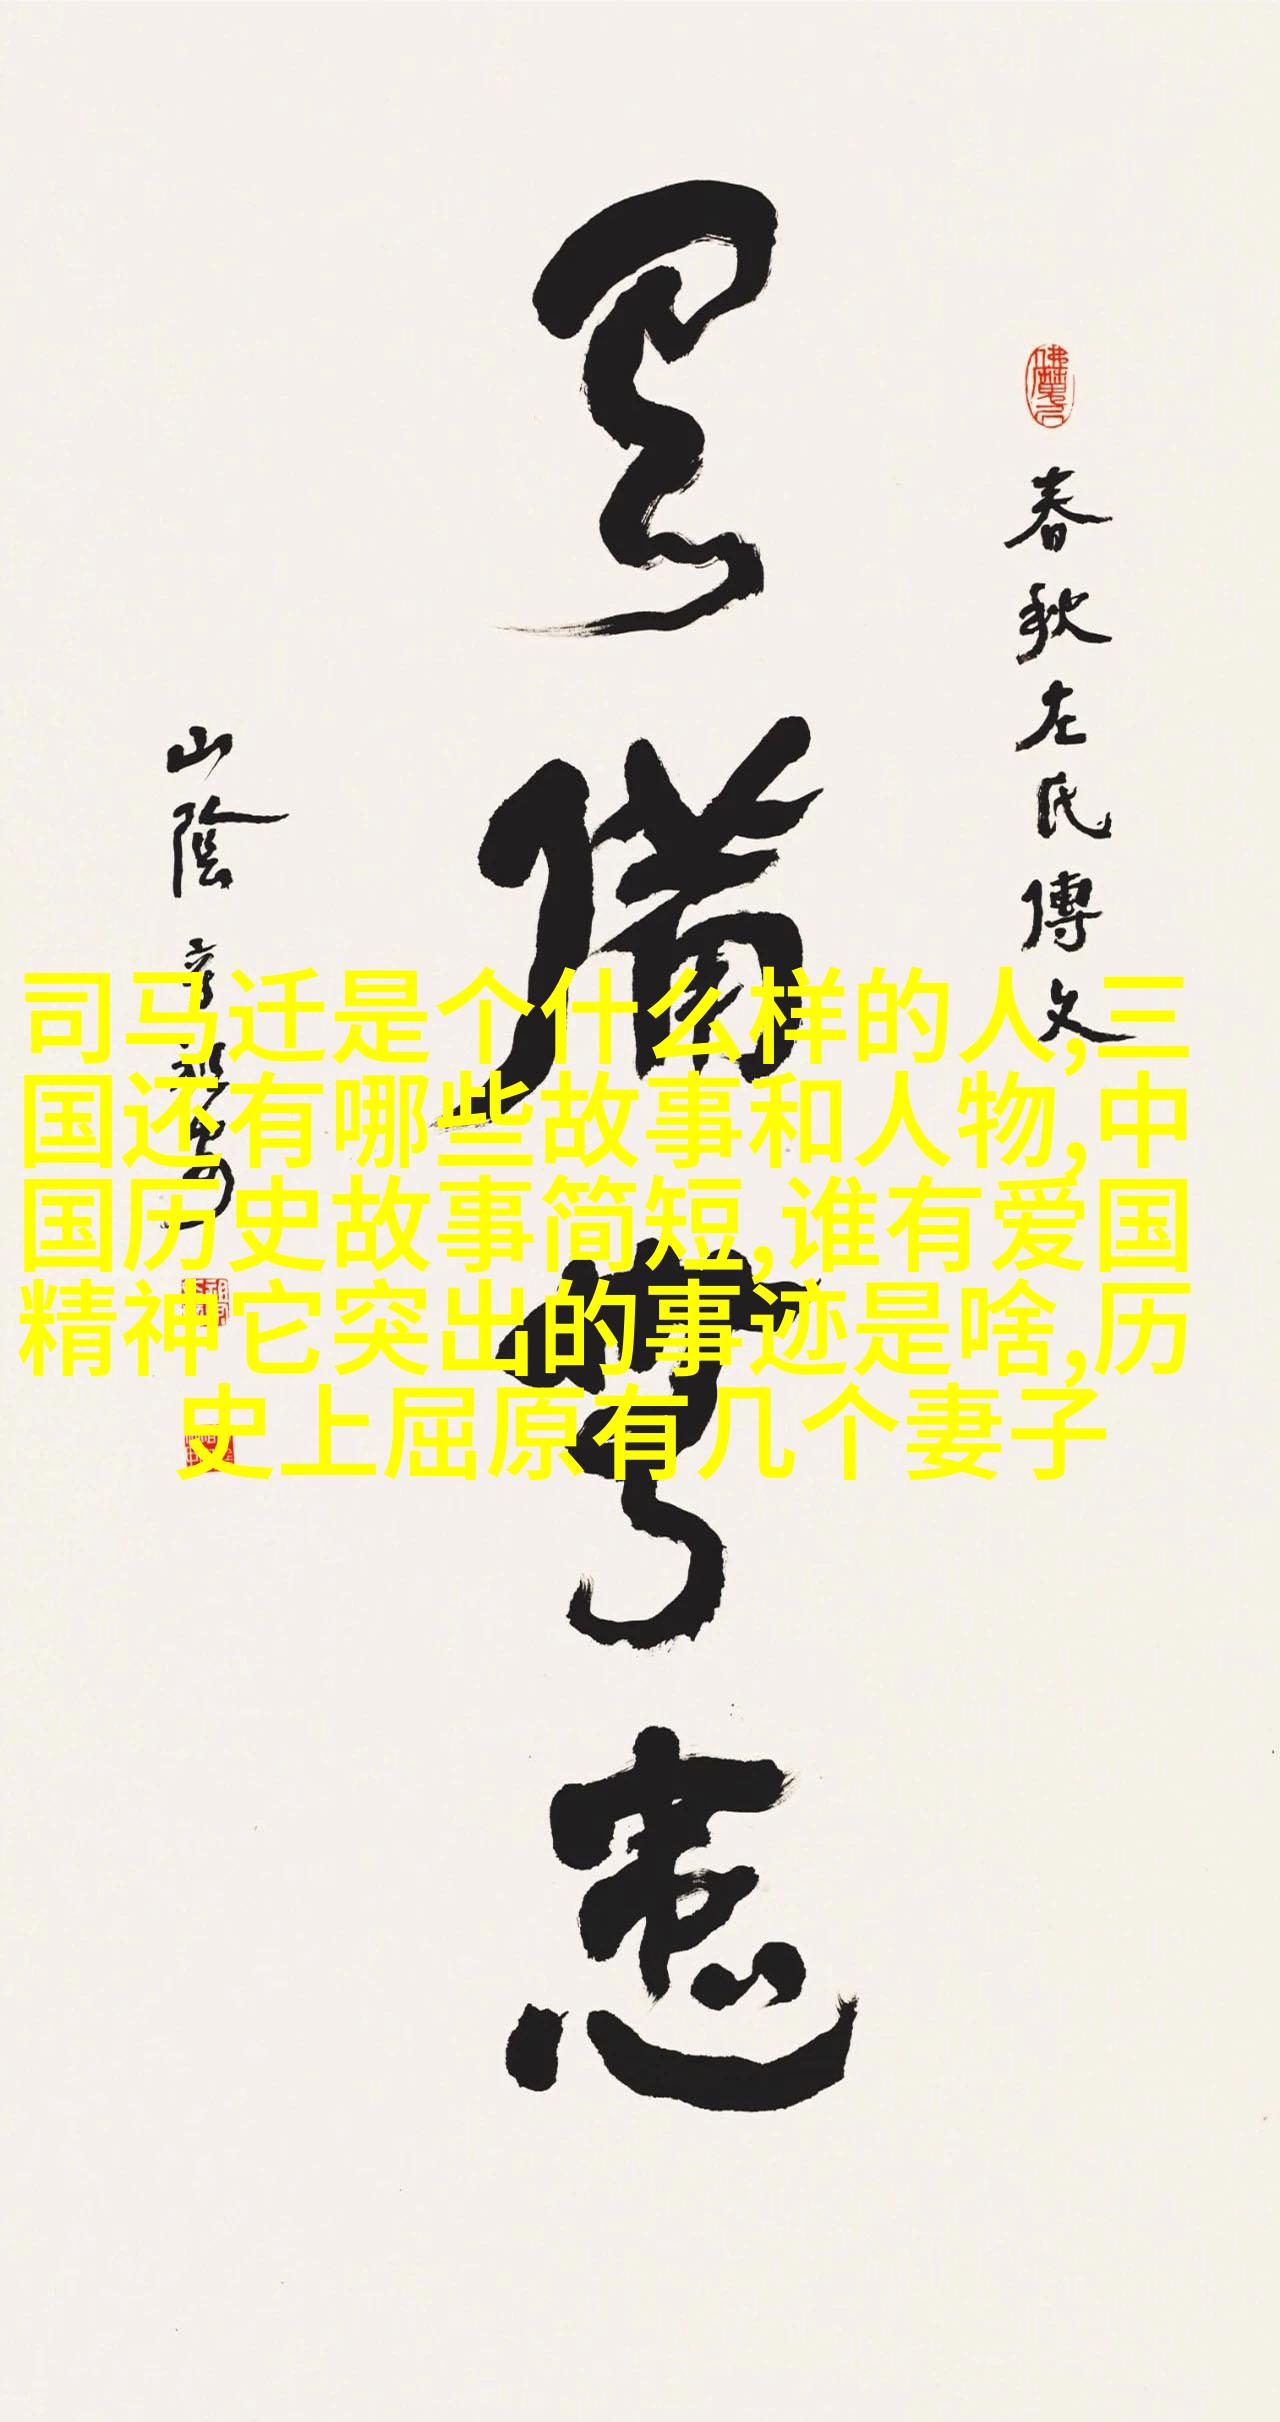 春秋左氏傳文
有備無患
山陰
司马迁是个什么样的人,三
国还有哪些故事和人物,中
国历史故事简短,谁有爱国
精神它突出的事迹是啥,历
史上屈原有几个妻子